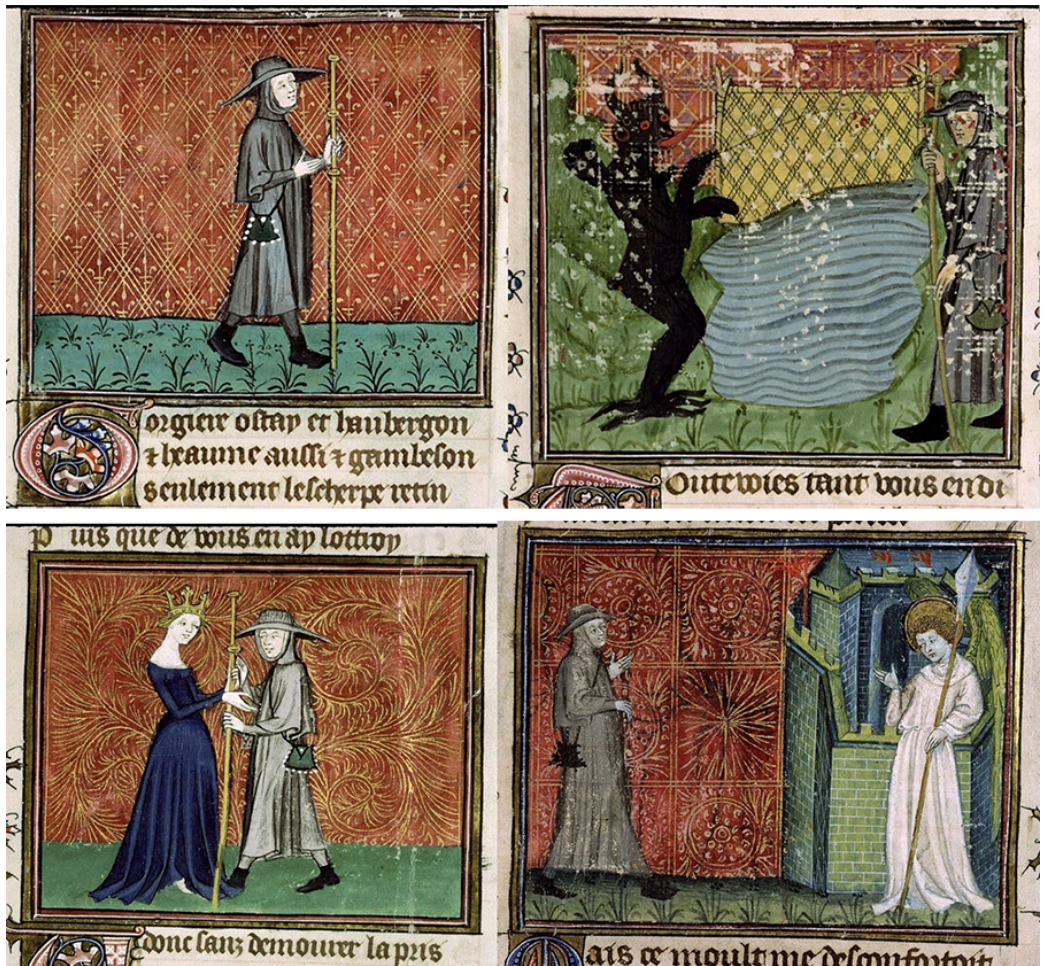 Gorgiere ostay et haubergon
& heaume aussi & gambeson
Seulement lescherpe retin
Outewies tant vous en di
Puis que de vous en ay lottroy
donc sanz demourer la pris
Mais ce moult me desconfortoit